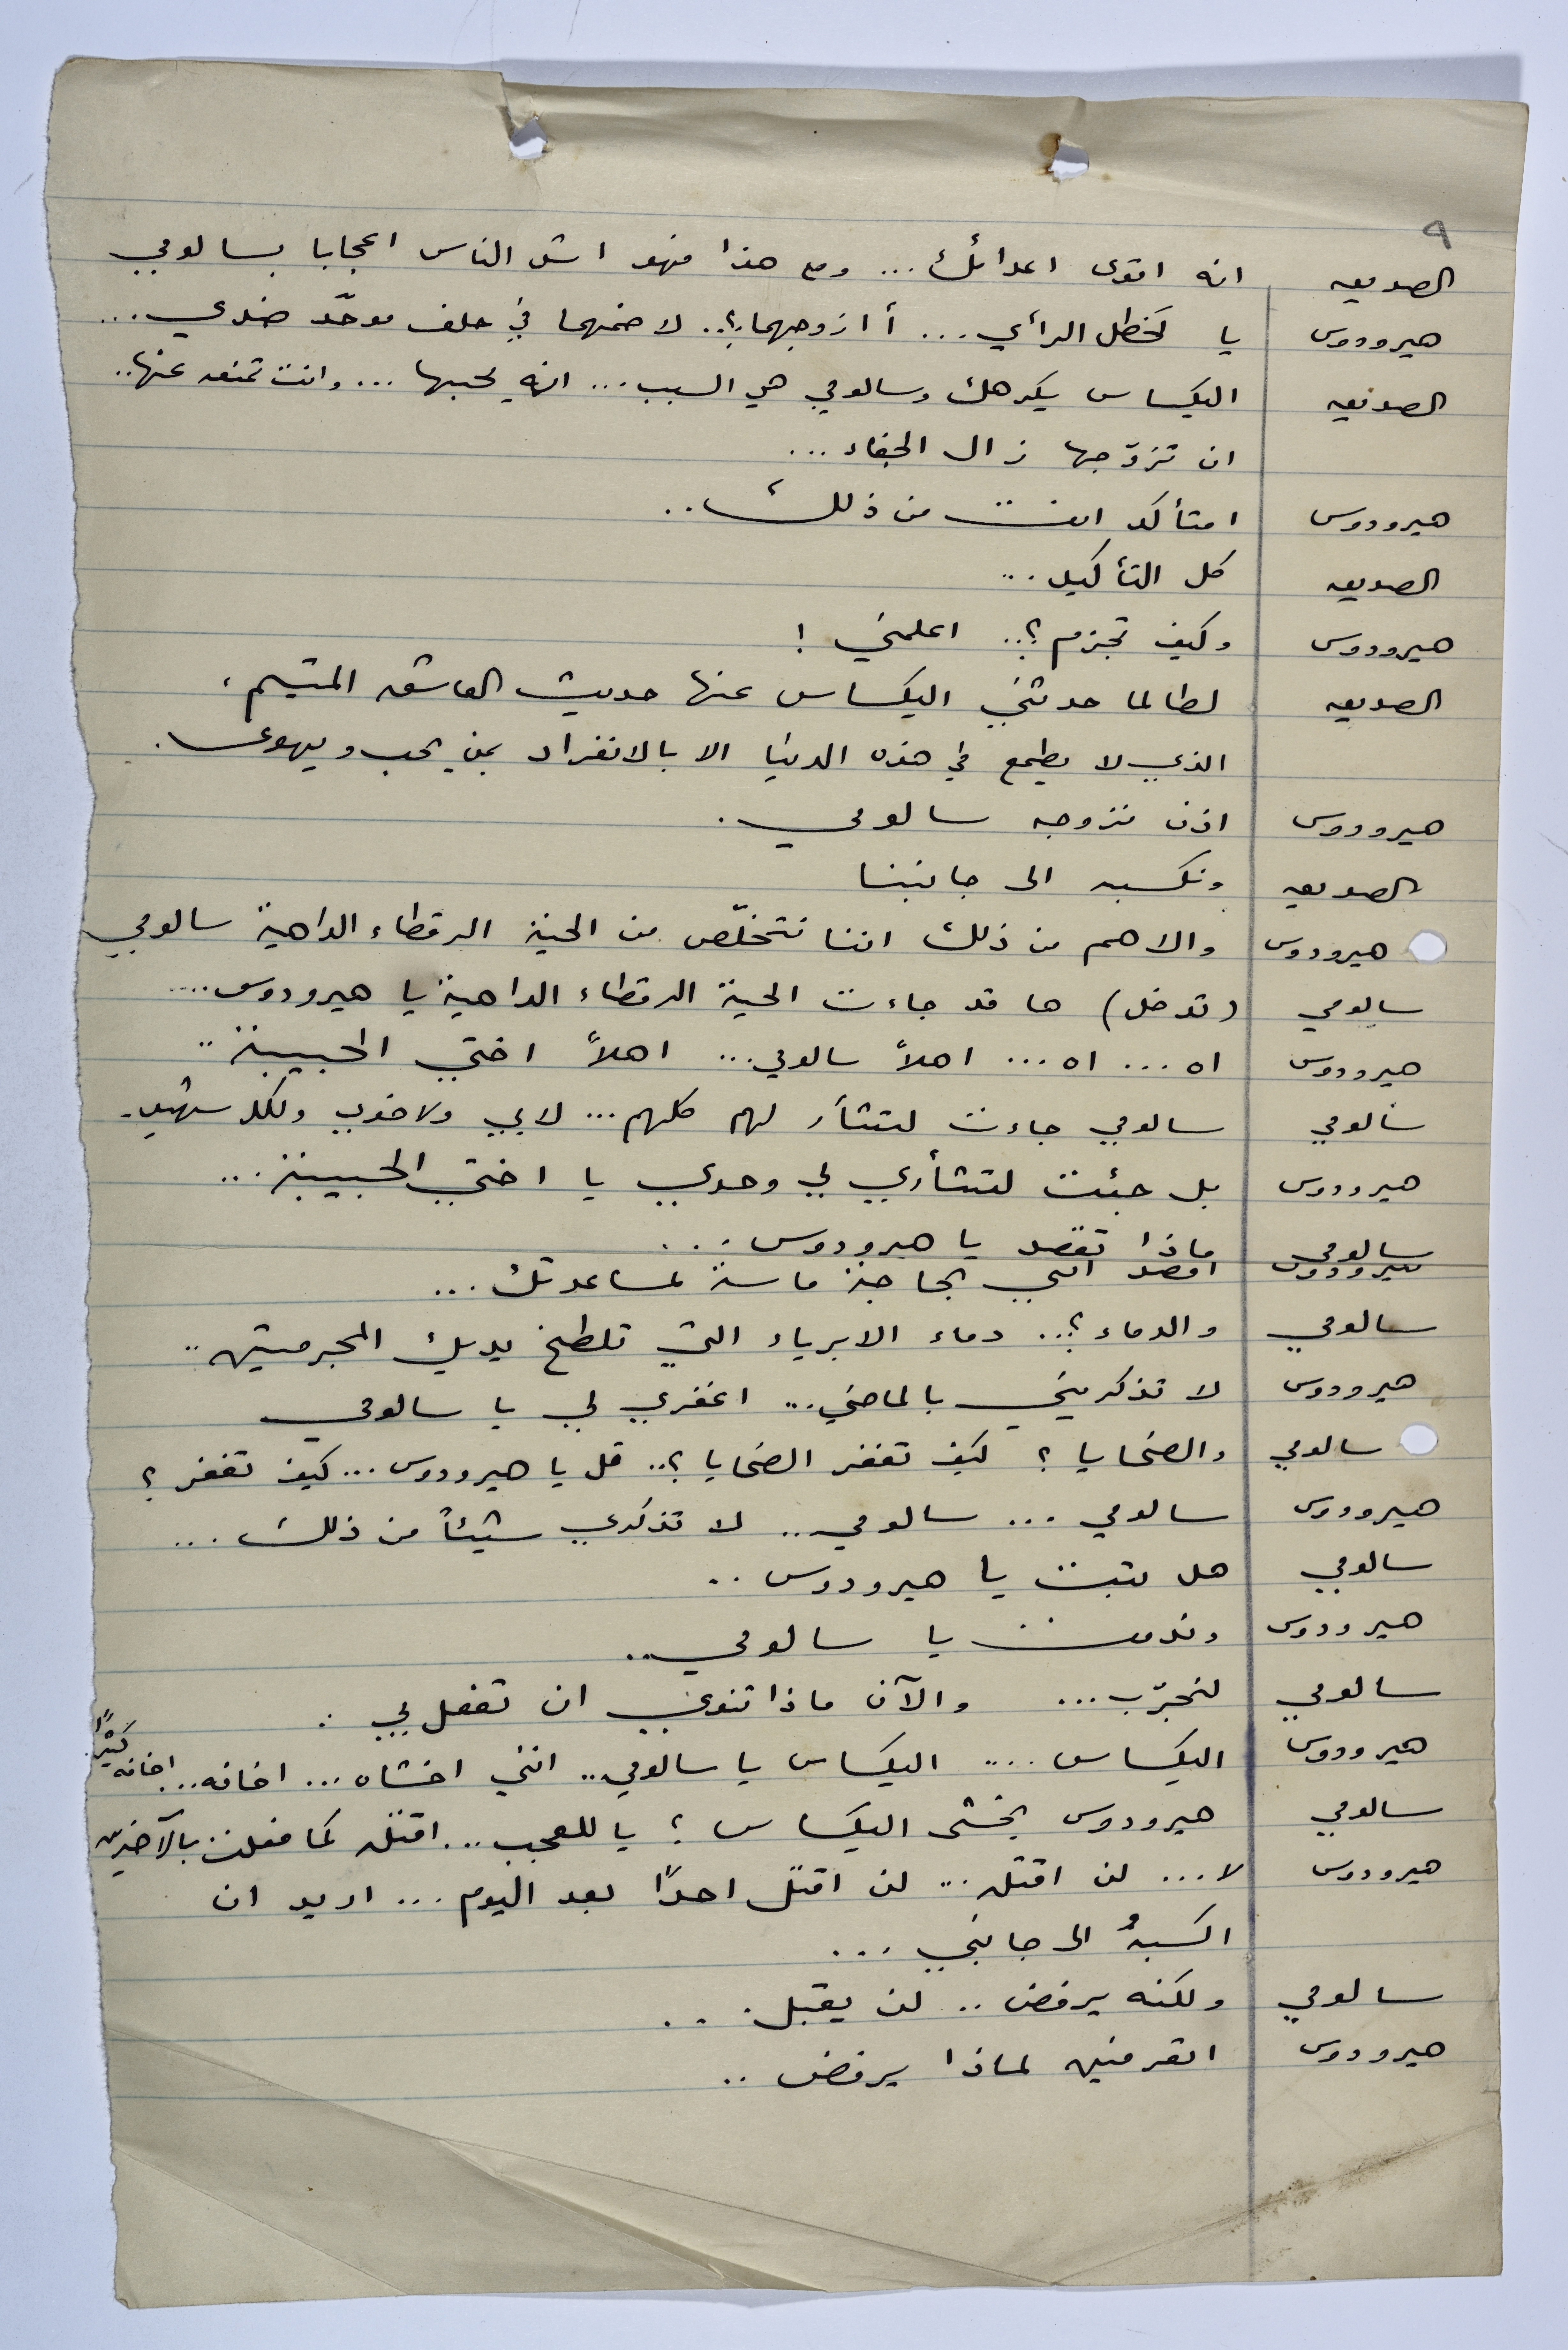 ٩
الصديق انه اقوى اعدائك ... ومع هذا فهو اشد الناس اعجابا بسالومي
هيرودوس يا لخطل الرأي ... أ ازوجهما؟.. لاضمهما في حلف موحّد ضدي ...
الصديق اليكساس يكرهك وسالومي هي السبب ... انه يحبها ... وانت تمنعه عنها..
ان تزوّجها زال الجفاء ...
هيرودوس امتأكد انت من ذلك؟..
الصديق كل التأكيد ...
هيرودوس وكيف تجزم؟.. اعلمني !
الصديق لطالما حدثني اليكساس عنها حديث العاشق المتيم،
الذي لا يطمع في هذه الدنيا الا بالانفراد بمن يحب ويهوى.
هيرودوس اذن نزوجه سالومي .
الصديق ونكسبه الى جانبنا
هيرودوس والاهم من ذلك اننا نتخلّص من الحية الرقطاء الداهية سالومي
سالومي (تدخل) ها قد جاءت الحية الرقطاء الداهية يا هيرودوس ....
هيرودوس اه ... اه ... اهلاً سالومي ... اهلاً اختي الحبيبة ..
سالومي سالومي جاءت لتثأر لهم كلهم ... لابي ولاخوي ولكل شهيد.
هيرودوس بل جئت لتثأري لي وحدي يا اختي الحبيبة ...
سالومي ماذا تقصد يا هيرودوس ...
هيرودوس اقصد انني بحاجة ماسة لمساعدتك ...
سالومي والدماء؟.. دماء الابرياء التي تلطخ يديك المجرمتين ..
هيرودوس لا تذكريني بالماضي ... اغفري لي يا سالومي
سالومي والضحايا ؟ كيف تغفر الضحايا ؟.. قل يا هيرودوس ... كيف تغفر ؟
هيرودوس سالومي ... سالومي .. لا تذكري شيئاً من ذلك ...
سالومي هل تبت يا هيرودوس ..
هيرودوس وندمت يا سالومي ..
سالومي لنجرّب ... والآن ماذا تنوي ان تفعل بي :
هيرودوس اليكساس .... اليكساس يا سالومي .. انني اخشاه ... اخافه ... اخافه كثيرًا
سالومي هيرودوس يخشى اليكساس ؟ يا للعجب ... اقتله كما فعلت بالآخرين
هيرودوس لا ... لن اقتله ... لن اقتل احدًا بعد اليوم ... اريد ان
اكسبهُ الى جانبي ...
سالومي ولكنه يرفض .. لن يقبل ...
هيرودوس اتعرفين لماذا يرفض ..